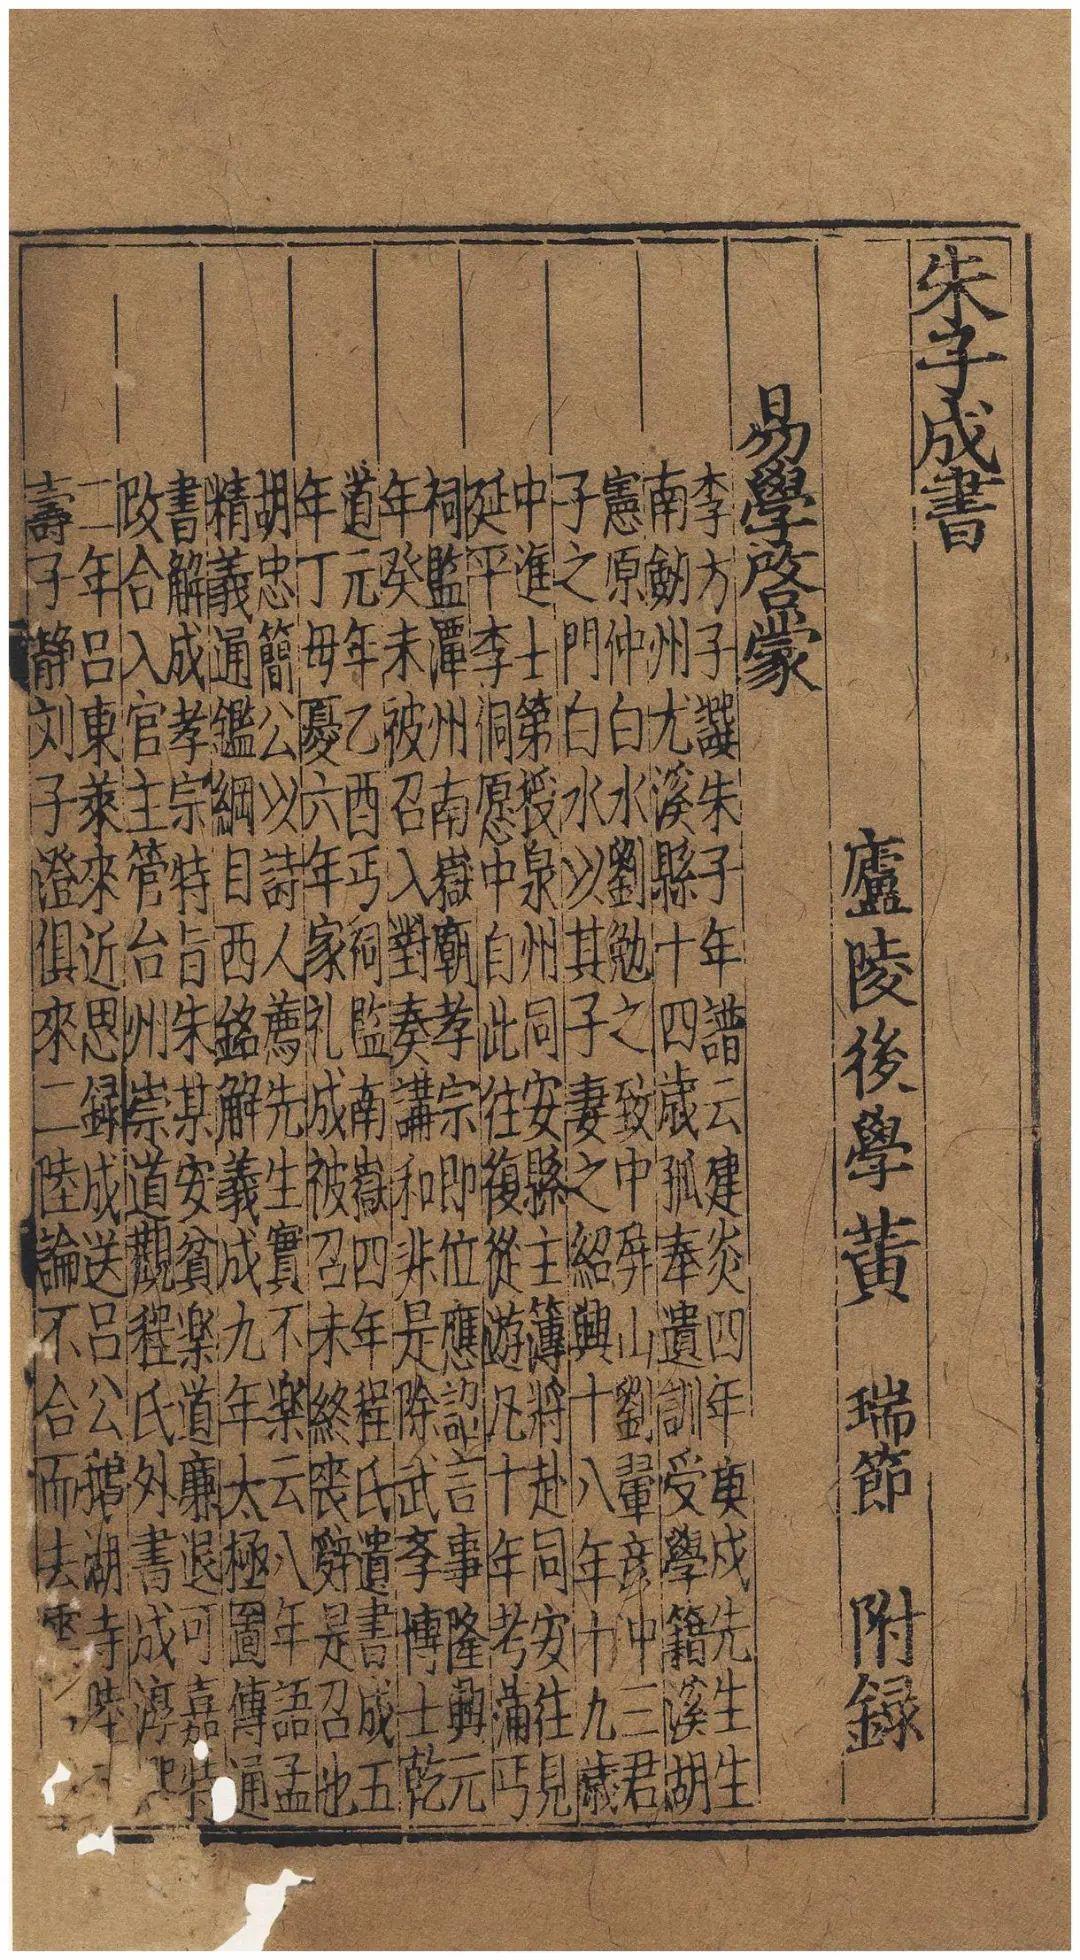 朱子成書
廬陵後學黃 瑞節 附録
易學啓蒙
李方子譔朱子年譜云建炎四年庚戌先生生
南劒州尤溪縣十四歲孤奉遺訓受學籍溪胡
憲原仲白水劉勉之致中屛山劉翬彦冲三君
子之門白水以其子妻之紹興十八年十九歲
中進士第授泉州同安縣主簿將赴同安往見
延平李侗愿中自此往復從遊凡十年考滿丐
祠監潭州南嶽廟孝宗即位應詔言事隆興元
年癸未被召入對奏講和非是除武斈博士乾
道元年乙酉丐祠監南嶽四年程氏遺書成五
年丁母憂六年家礼成被召未終喪辤是召也
胡忠簡公以詩人薦先生實不楽云八年語孟
精義通鑑綱目西銘解義成九年太極圖傳通
書解成孝宗特旨朱某安貧楽道廉退可嘉特
改合入官主管台州崇道觀程氏外書成淳熙
二年呂東萊來近思録成送呂公鵝湖寺陸子
壽子靜刘子澄俱來二陸論不合而去